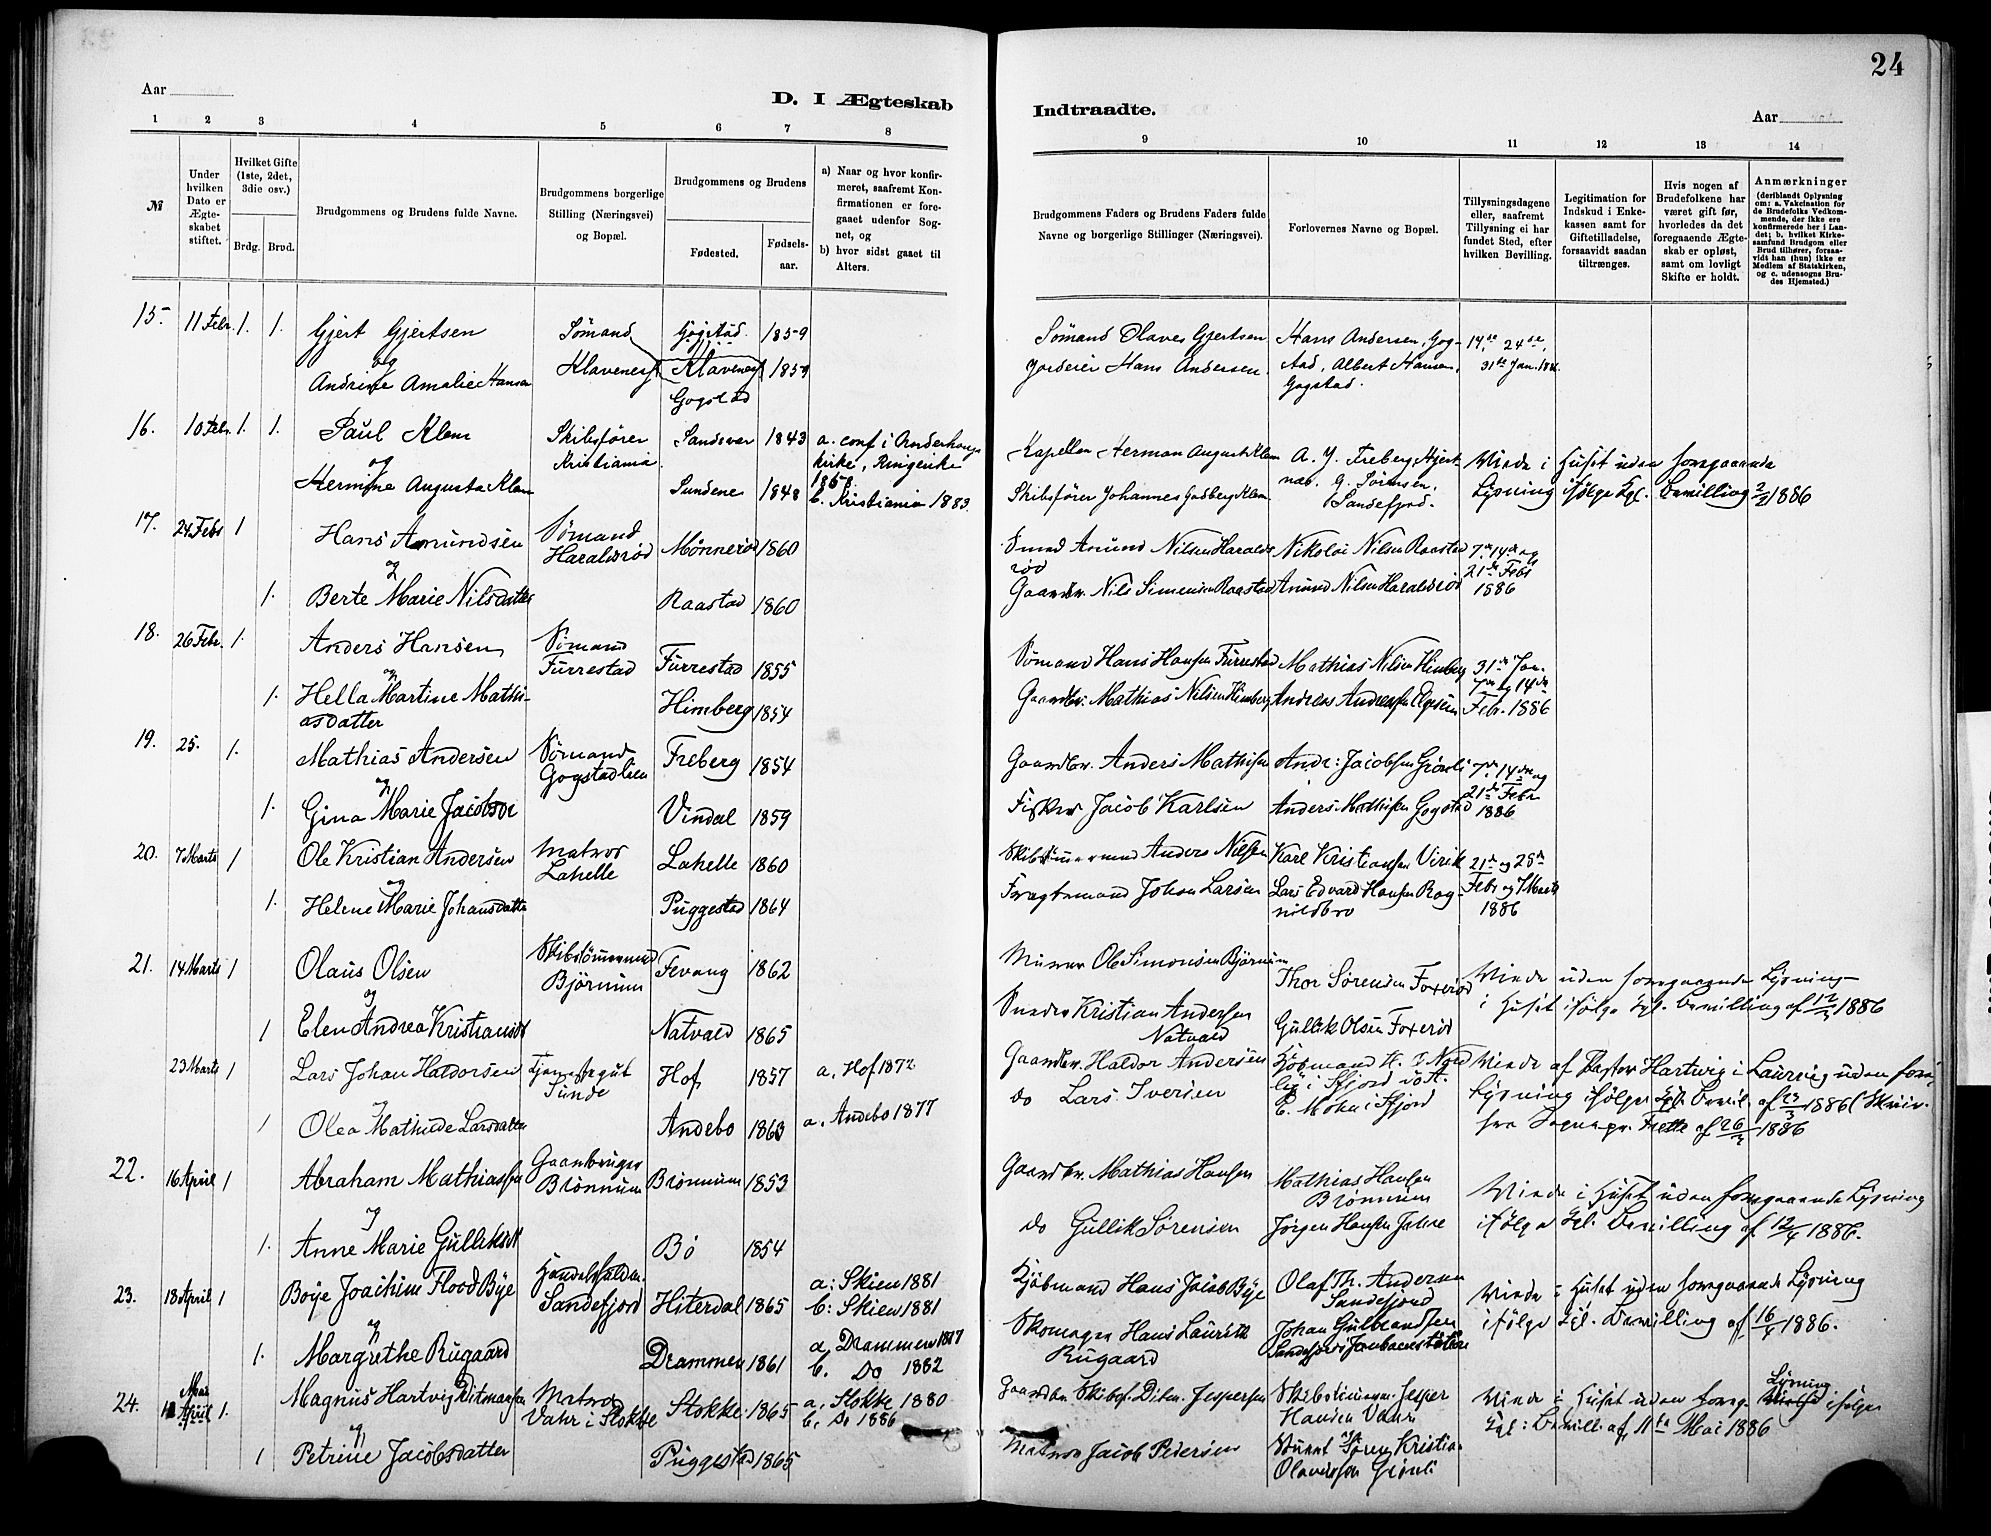 24
Aar
D. I Ægteskab
Indtraadte.
Aar
1 2 3 4 5 6 7 8 9 10 11 12 13 14
№
Under hvilken Dato er Ægteskabet stiftet.
Hvilket Gifte (1ste, 2det, 3die osv.)
Brdg. Brud.
Brudgommens og Brudens fulde Navne.
Brudgommens borgerlige Stilling (Næringsvei) og Bopæl.
Brudgommens og Brudens
Fødested.
Fødselsaar.
a) Naar og hvor konfirmeret, saafremt Konfirmationen er foregaaet udenfor Sognet, og
b) hvor sidst gaaet til Alters.
Brudgommens Faders og Brudens Faders fulde Navne og borgerlige Stillinger (Næringsvei).
Forlovernes Navne og Bopæl.
Tillysningsdagene eller, saafremt Tillysning ei har fundet Sted, efter hvilken Bevilling.
Legitimation for Indskud i Enkekassen samt for Giftetilladelse, forsaavidt saadan tiltrænges.
Hvis nogen af Brudefolkene har været gift før, hvorledes da det foregaaende Ægteskab er opløst, samt om lovligt Skifte er holdt.
Anmærkninger (deriblandt Oplysning om: a. Vakcination for de Brudefolks Vedkommende, der ikke ere konfirmerede her i Landet; b. hvilket Kirkesamfund Brudgom eller Brud tilhører, forsaavidt han (hun) ikke er Medlem af Statskirken, og c. udensogns Brudes Hjemsted.)
15. 11 Febr. 1. 1. Gjert Gjertsen Sømand Gogstad 1859 Sømand Olaves Gjertsen Hans Andersen, Gog- 14de 24de,
og
Andrine Amalie Hansen Klavenes Klavenes 1859 Gorderier Hans Andersen. stad, Albert Hansen, 31te Jan. 1886
Gogstad Gogstad.
16. 10 Febr. 1. 1. Paul Klem Skibsfører Sandsvær 1843 a. conf i Anderhougs Kapellan Herman August Klem A. Y. Freberg, Hjert- Viede i Huset uden foregaaende
og Kristiania kirke, Ringerike 1858
Hermine Augusta Klem Sundene 1848 b. Kristiania 1883. Skibsfører Johannes Gadberg Klem næs. G. Sörensen, Lysning ifølge Kgl. Bevilling 2/2 1886
Sandefjord.
17. 24 Febr 1 Hans Amundsen Sømand Haraldsrød Mønnerød 1860 Smed Amund Nilsen Haraldsrød Nikolai Nilsen Raastad 7de 14de og 21de Febr 1886
og
1. Berte Marie Nilsdatter Raastad 1860 Gaardbr. Nils Simensen Raastad Amund Nilsen Haraldsrød
18. 26 Febr. 1. Anders Hansen Sømand Furrestad Furrestad 1855 Sømand Hans Hansen Furrestad Mathias Nilsen Himberg 31te Jan.
og 7de og 14de
1. Hella Martine Mathiasdatter Himberg 1854 Gaardbr. Mathias Nilsen Himberg Andreas Andreassen Febr. 1886
19. 25. 1. Mathias Andersen Sømand Gogstadlien Freberg 1854 Gaardbr. Anders Mathisen Andr: Jacobsen Grønli 7de, 14de og
og 21de Febr
1. Gina Marie Jacobsdr Vindal 1859 Fisker Jacob Karlsen Anders Mathisen Gogstad 1886
20. 7 Marts 1 Ole Kristian Andersen Matros Lahelle Lahelle 1860 Skibstømmermand Anders Nilsen Karl Kristiansen Virik 21de og 28de
og Febr og 7 Marts
1. Helene Marie Johansdatter Puggestad 1864 Fragtemand Johan Larsen Lars Edvard Hansen Rag- 1886
nildbro
21. 14 Marts 1 Olaus Olsen Skibstømmermand Bjørnum Fevang 1862 Murer Ole Simonsen Bjørnum Thor Sørensen Foxerød Viede uden foregaaende Lysning
og i Huset ifølge Kgl. Bevilling af 12/3 1886
1 Elen Andrea Kristiansdt Natvald 1865 Snedker Kristian Andersen Natvald Gullik Olsen Foxerød
23 Marts 1 Lars Johan Haldorsen Tjenestegut Sunde Hof 1857 a. Hof 1872 Gaardbr. Haldor Andersen Kjøbmand H. T. Nord- Viede af Pastor Hartvig i Laurvig uden foreg.
og
1 Olea Mathilde Larsdatter Andebo 1863 a. Andebo 1877 do Lars Iversen E. Mohn i Sfjord Lysning ifølge Kgl. Bevil. af 23/3 1886 (Skriv.
fra Sognepr. Frette af 26/3 1886
22. 16 April 1 Abraham Mathiassen Gaardbruger Brønnum Brønnum 1853 Gaardbr. Mathias Hansen Mathias Hansen Brønnum Viede i Huset uden foregaaende Lysning
og
1. Anne Marie Gulliksdt Bø 1854 do Gullik Sørensen Jørgen Hansen Jahre ifølge Kgl. Bevilling af 12/4 1886.
23. 18 April 1 Boye Joachim Flood Bye Handelsfuldm. Sandefjord Hiterdal 1865 a: Skien 1881 b: Skien 1881 Kjøbmand Hans Jacob Bye Olaf Th. Andersen Sandefjord Viede i Huset uden foregaaende Lysning
og
1. Margrethe Rugaard Drammen 1861 a, Drammen 1877 b. Do 1882 Skomager Hans Lauritz Rugaard Johan Gulbrandsen Sandefjords Jernbanestation ifølge Kgl. Bevilling af 16/4 1886.
24. Mai April 1. Magnus Hartvig Ditmansen Matros Vahr i Stokke Stokke 1865 a. Stokke 1880 b. Do 1886 Gaardbr Skibsf. Ditm. Jespersen Skibstimmerm. Jesper Hansen Vahr Viede i Huset uden foreg. Lysning ifølge
og Kgl: Bevill. af, 11te Mai 1886
1 Petrine Jacobsdatter Puggestad 1865 Matros Jacob Pedersen Søren Kristian
Olavessen Grønli